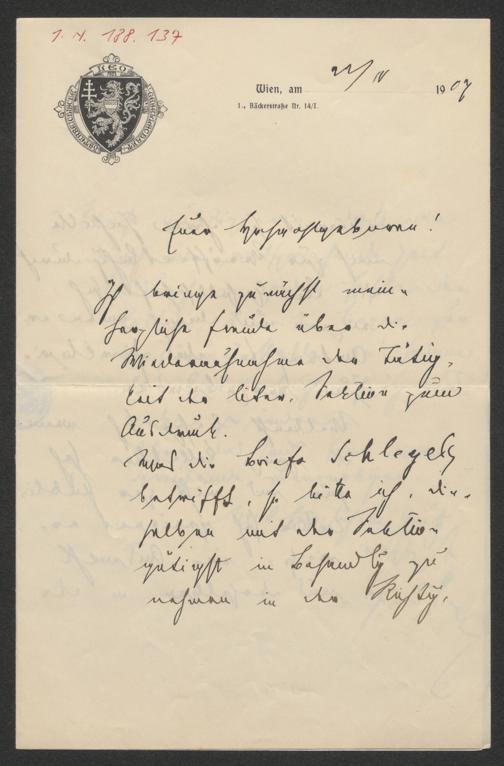 I. N. 188.137
LEO
Wien, am 22/IV 1907
I., Bäckerstraße Nr. 14/I.
Euer Hochwohlgeboren!
Ich bringe zunächst meine
herzliche Freude über die
Wiederaufnahme der Tätig-
keit der liter. Sektion zum
Ausdruck.
Was die Briefe Schlegels
betrifft, so bitte ich, die-
selben mit der Sektion
gütigst in Behandlg zu
nehmen in der Richtg,